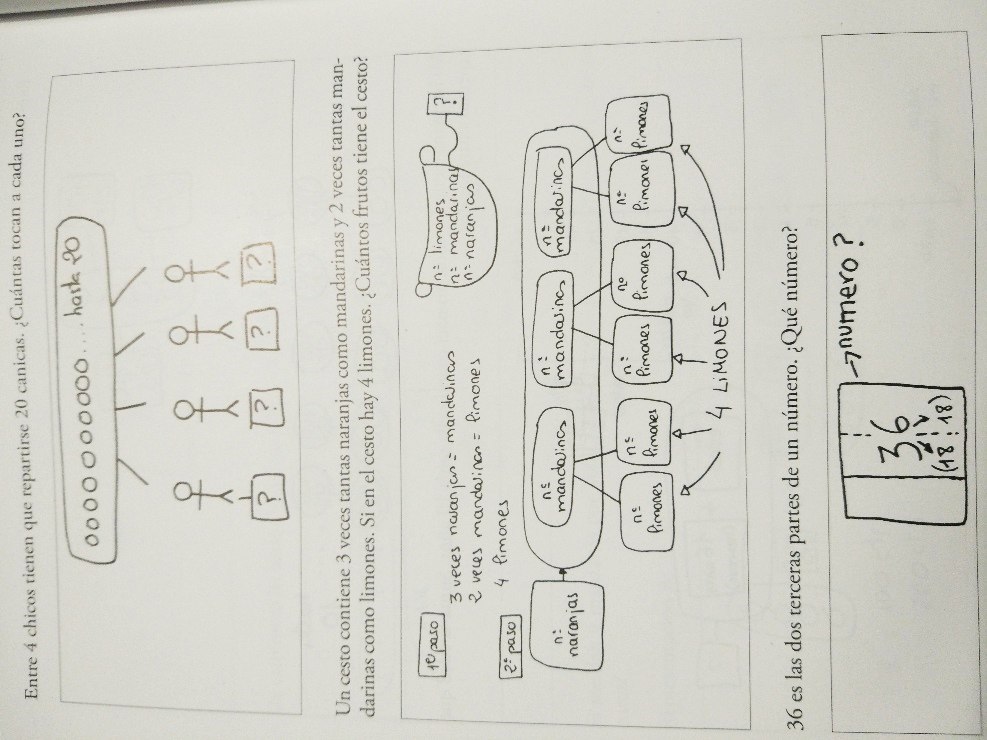 Entre 4 chicos tienen que repartirse 20 canicas. ¿Cuántas tocan a cada uno?
0000000000000.... hasta 20
?
?
?
?
Un cesto contiene 3 veces tantas naranjas como mandarinas y 2 veces tantas man-
darinas como limones. Si en el cesto hay 4 limones. ¿Cuántos frutos tiene el cesto?
1er paso
3 veces naranjas = mandarinas
2 veces mandarinas = limones
4 limones
nº limones
nº mandarinas
nº naranjas
?
2º paso
nº
naranjas
nº
mandarinas
nº
mandarinas
nº
mandarinas
nº
limones
nº
limones
nº
limones
nº
limones
nº
limones
nº
limones
4 LIMONES
36 es las dos terceras partes de un número. ¿Qué número?
36
(18 18)
→ numero?